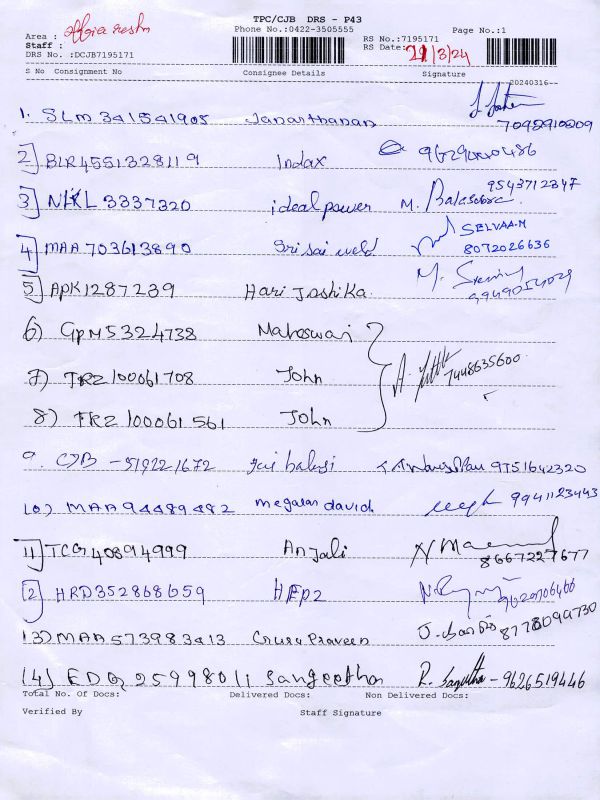 TPC/CJB DRS - P43
Phone No.:0422-3505555 Page No.:1
Area : RS No.:7195171
Staff : RS Date: 21/3/24
DRS No. :DCJB7195171
S No Consignment No Consignee Details Signature
20240316--
1. SLM 341541905 Jananthanan 7092910209
2] BLR4551328119 Indax
3] NKL 3337320 ideal power M. 9543712347
4] MAA 703613890 Sri sai weld SELVAA.M 8072026636
5] APK1287239 Hari Joshika M.
6) GPM5324738 Maheswari
7) TRZ100061708 John A. 7448635600
8) TRZ100061561 John
9. CJB - 519221672 Jai balaji 9751642320
10) MAA94489482 megalan david 9941123443
11] TCG40894999 Anjali 8667227677
12] HRD352868659 HEPZ 9620706466
13) MAA573983413 Praveen 8778099730
14) EDQ25998011 Sangeetha R. Sangeetha - 9626519446
Total No. Of Docs: Delivered Docs: Non Delivered Docs:
Verified By Staff Signature